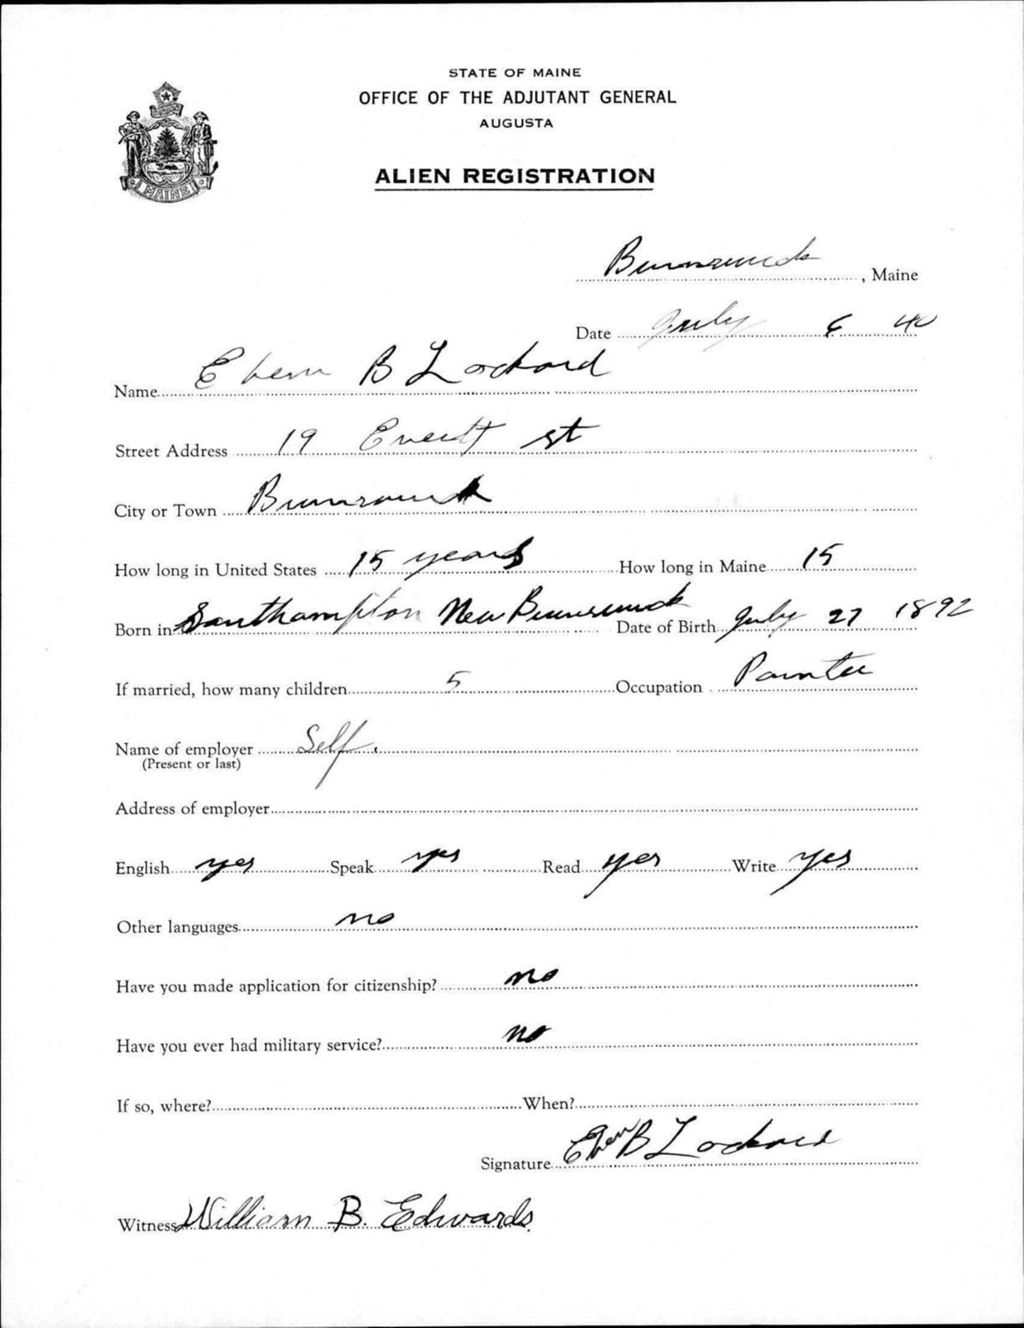 STATE OF MAINE
OFFICE OF THE ADJUTANT GENERAL
AUGUSTA
ALIEN REGISTRATION
MAINE
Brunswick, Maine
Date July 6 40
Name Eben B Lockard
Street Address 19 Everett st
City or Town Brunswick
How long in United States 15 years How long in Maine 15
Born in Southampton New Brunswick Date of Birth July 27 1892
If married, how many children 5 Occupation Painter
Name of employer Self.
(Present or last)
Address of employer
English yes Speak yes Read yes Write yes
Other languages no
Have you made application for citizenship? no
Have you ever had military service? no
If so, where? When?
Signature Eben B Lockard
Witness William B. Edwards